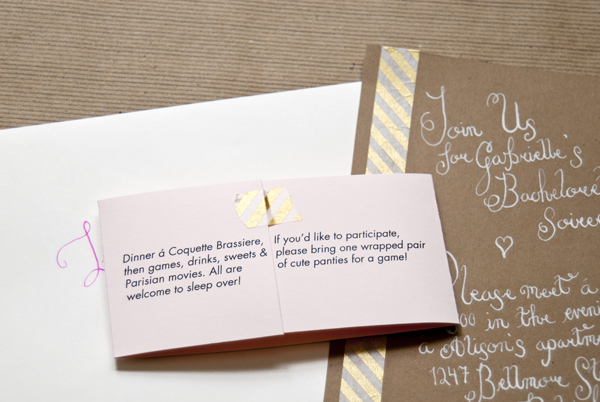 Dinner á Coquette Brassiere,
then games, drinks, sweets &
Parisian movies. All are
welcome to sleep over!
If you'd like to participate,
please bring one wrapped pair
of cute panties for a game!
Join Us
for Gabrielle's
Bachelore
Soiree
Please meet á
00 in the eveni
a Alison's apartm
1247 Bellmore St